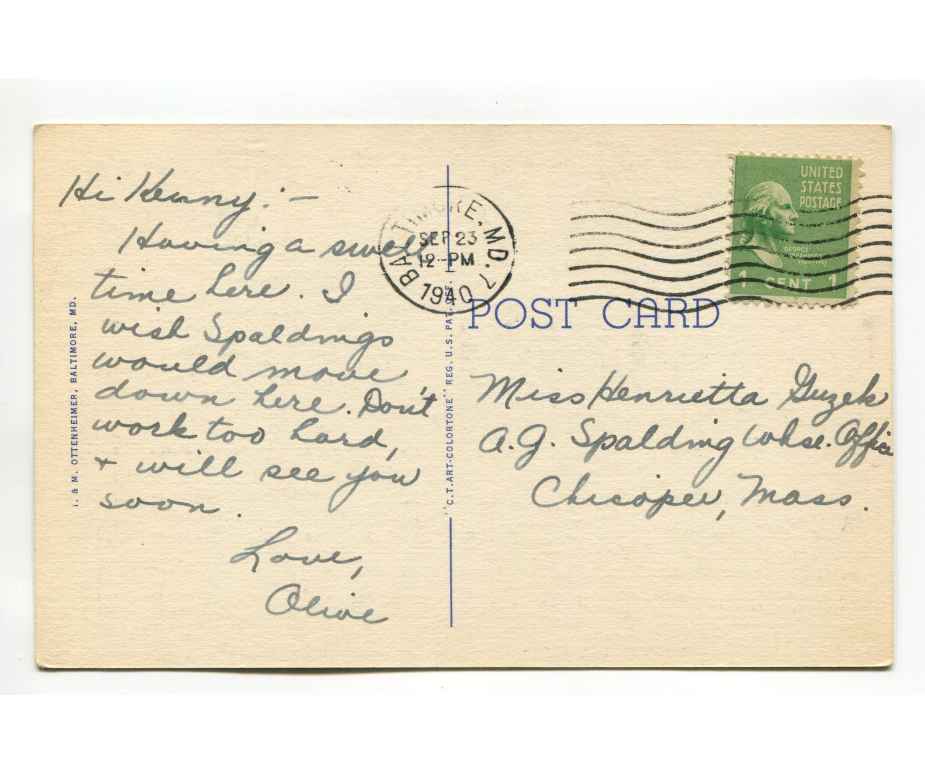 Hi Henny:-
Having a swell
time here. I
wish Spaldings
would move
down here. Don't
work too hard,
+ will see you
soon.
Love,
Olive
I. & M. OTTENHEIMER, BALTIMORE, MD.
"C.T. ART-COLORTONE" REG. U.S. PAT.
BALTIMORE, MD. 7
SEP 23
12-PM
1940
UNITED
STATES
POSTAGE
GEORGE
1 CENT 1
POST CARD
Miss Henrietta Guzek
A.G. Spalding Whse. Office
Chicopee, Mass.